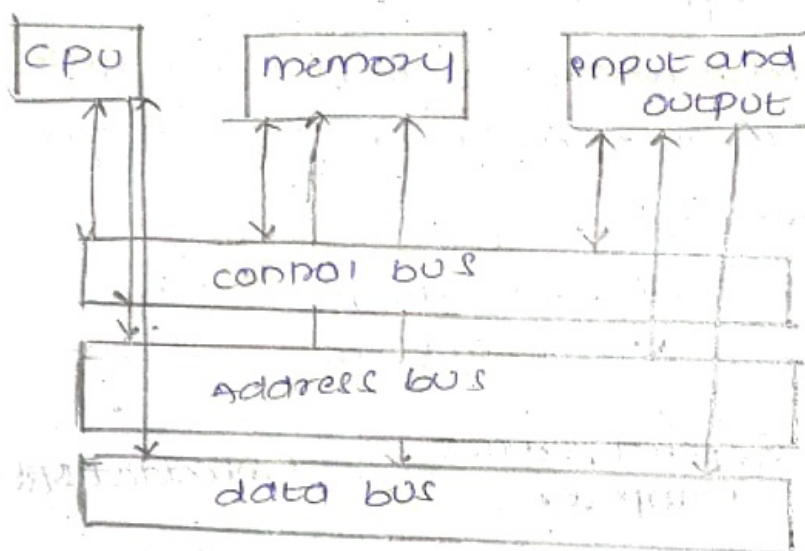 CPU
memory
input and
output
control bus
Address bus
data bus